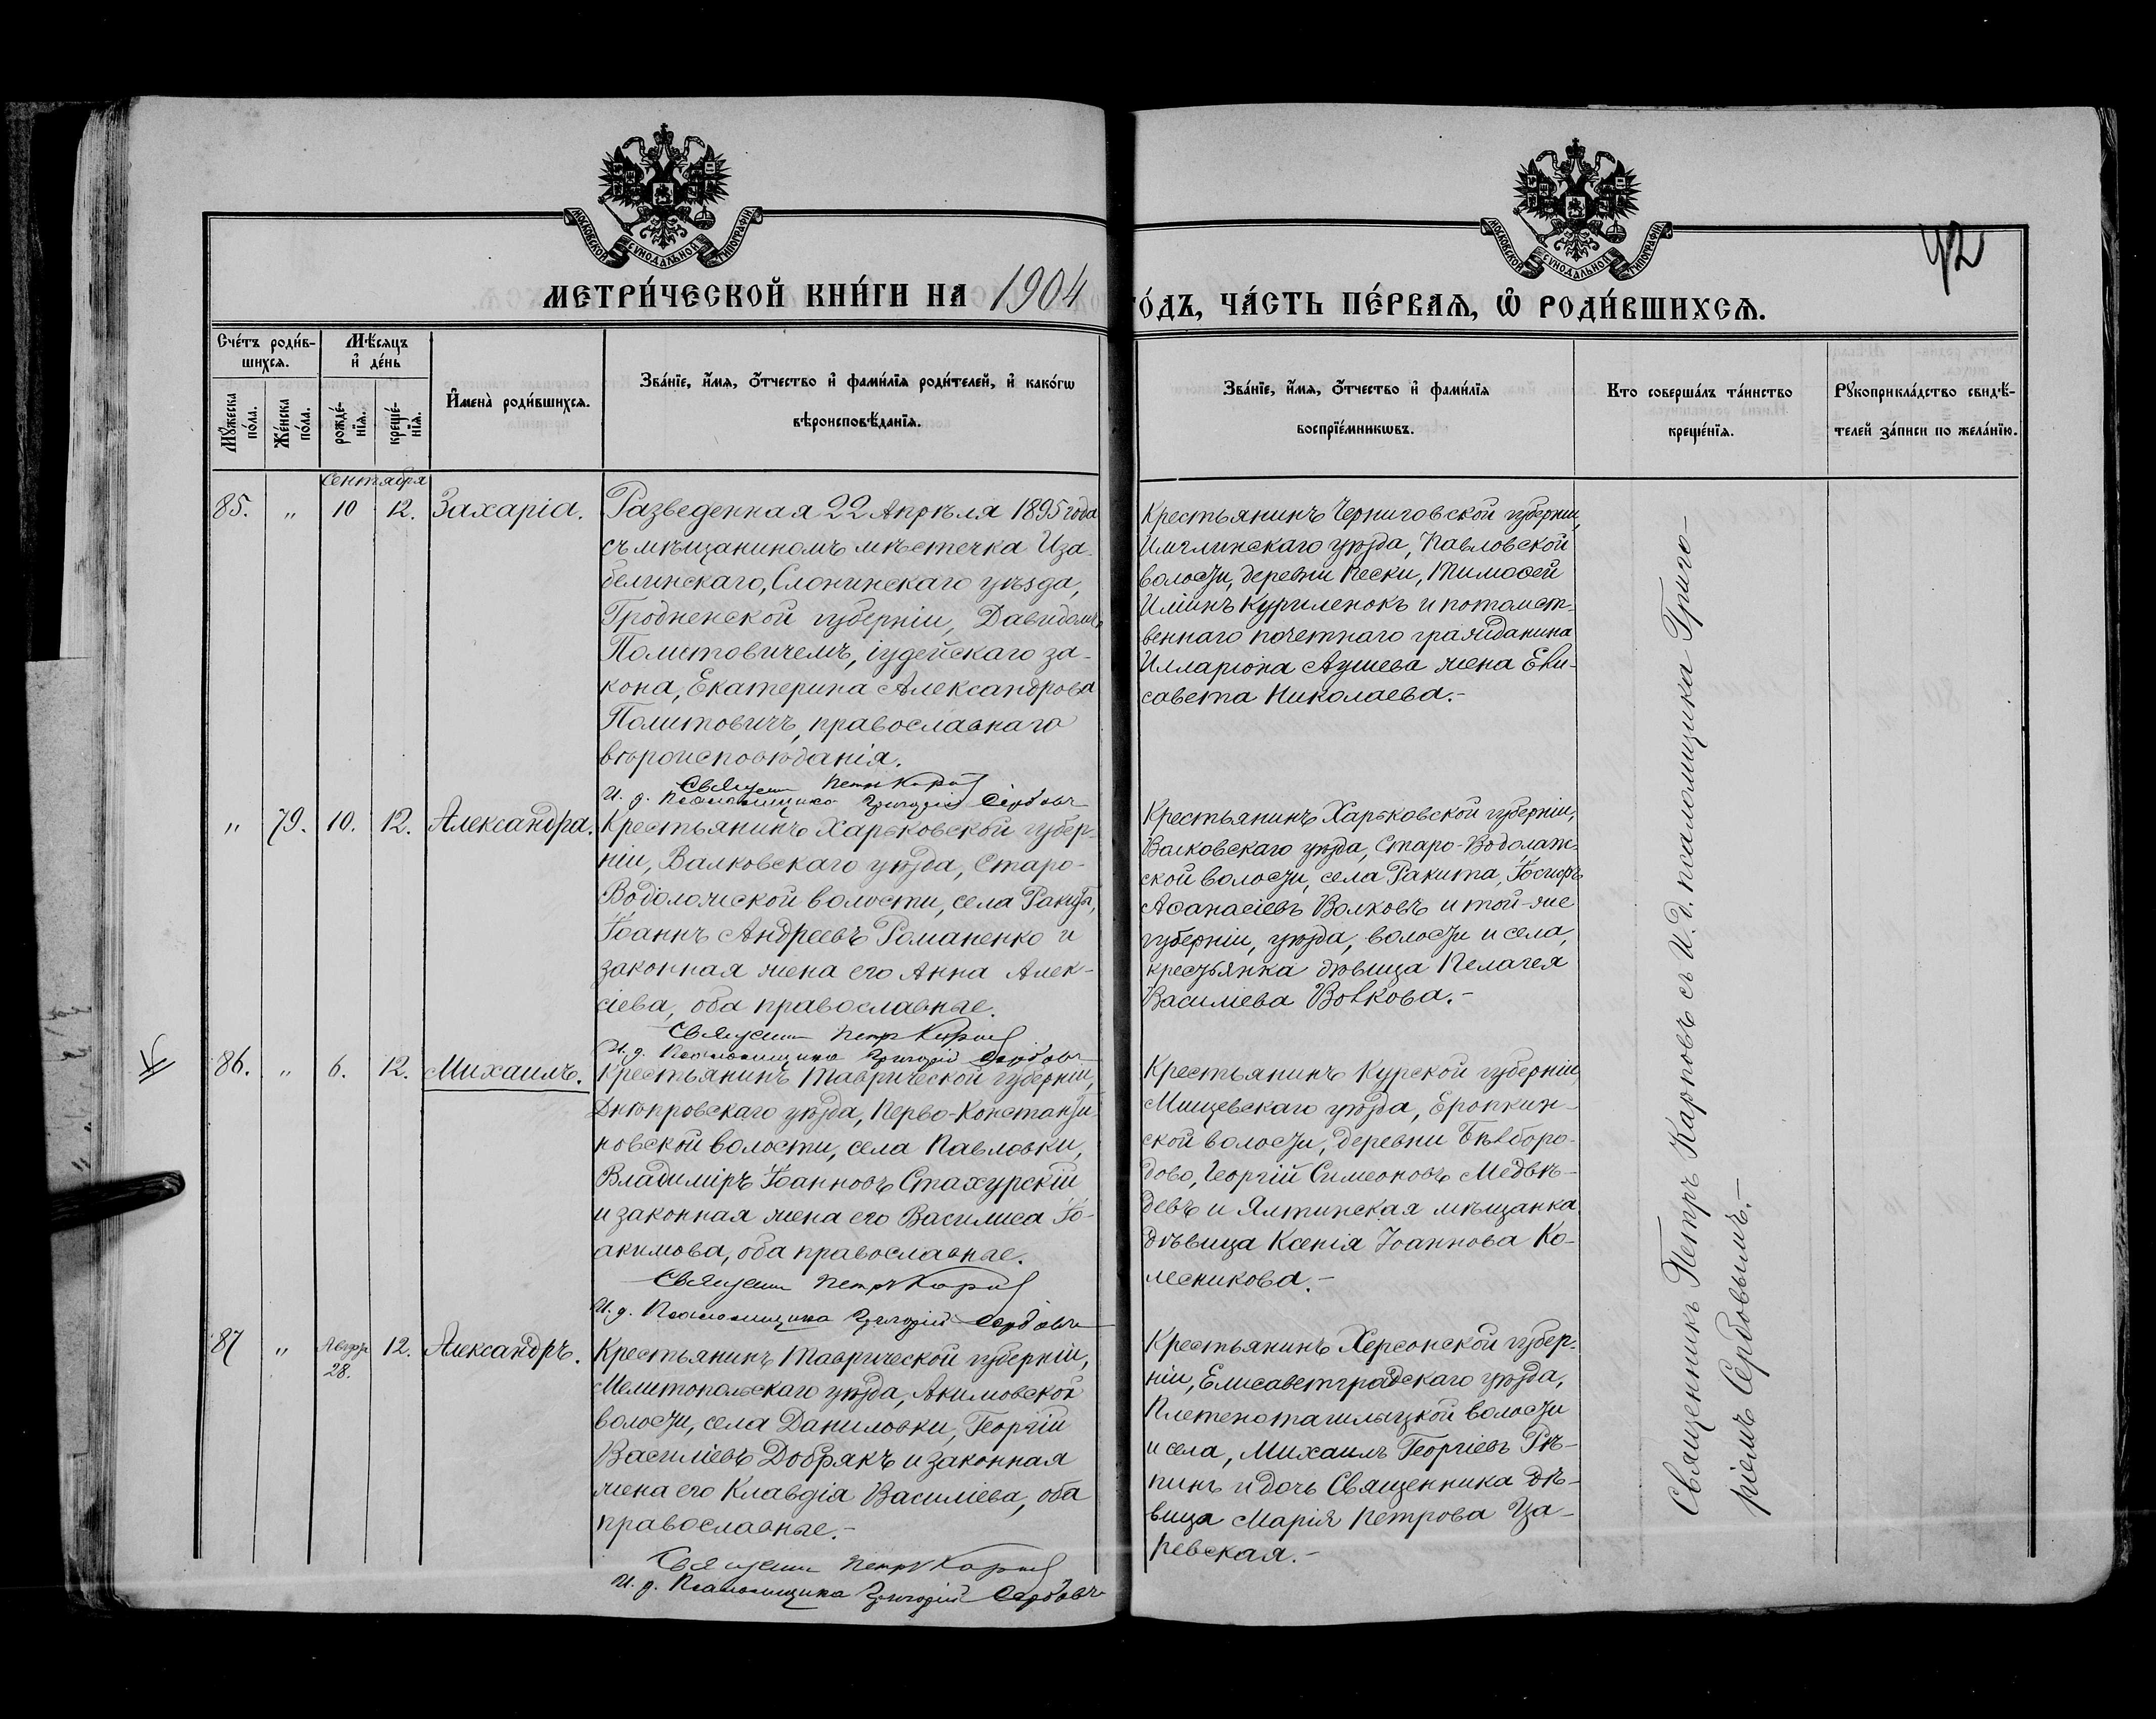 МОСКОВСКОЙ СУНОДАЛЬНОЙ ТИПОГРАФІИ
МОСКОВСКОЙ СУНОДАЛЬНОЙ ТИПОГРАФІИ
42
МЕТРИ́ЧЕСКОЙ КНИ́ГИ НА 1904
ГО́ДЪ, ЧА́СТЬ ПЕ́РВАѦ, Ѡ҆ РОДИ́ВШИХСѦ.
Сче́тъ роди́в-
шихсѧ.
Мѣ́сѧцъ
и҆ де́нь
Мꙋ́жеска
по́ла.
Же́нска
по́ла.
рожде́-
нїѧ.
креще́-
нїѧ.
И҆мена̀ роди́вшихсѧ.
Зва́нїе, и҆́мѧ, ѻ҆́тчество и҆ фами́лїѧ роди́телей, и҆ како́гѡ
вѣроисповѣ́данїѧ.
Зва́нїе, и҆́мѧ, ѻ҆́тчество и҆ фами́лїѧ
воспрїе́мникѡвъ.
Кто соверша́лъ та́инство
креще́нїѧ.
Рꙋкоприкла́дство свидѣ́-
телей за́писи по жела́нїю.
Сентября
85. " 10 12. Захарія.
Разведенная 22 Апрѣля 1895 года
съ мѣщаниномъ мѣстечка Иза-
белинскаго, Слонинскаго уѣзда,
Гродненской губерніи, Давидомъ
Политовичемъ, іудейскаго за-
кона, Екатерина Александрова
Политовичъ, православнаго
вѣроисповѣданія.
Священ. Петръ Карповъ
И. д. Псаломщика Григорій Сербовъ
Крестьянинъ Черниговской губерніи,
уѣзда, Павловской
волости, деревни Пески, Тимоѳей
Иліинъ Куриленокъ и потомст-
веннаго почетнаго гражданина
Илларіона Аушева жена Ели-
савета Николаева.-
" 79. 10. 12. Александра.
Крестьянинъ Харьковской губер-
ніи, Валковскаго уѣзда, Старо-
Водоложской волости, села Ракиты,
Іоаннъ Андреевъ Романенко и
законная жена его Анна Алек-
сіева, оба православные.
Священ. Петръ Карповъ
И. д. Псаломщика Григорій Сербовъ
Крестьянинъ Харьковской губерніи,
Валковскаго уѣзда, Старо-Водолаж-
ской волости, села Ракита, Іосифъ
Аѳанасіевъ Волковъ и той-же
губерніи, уѣзда, волости и села,
крестьянка дѣвица Пелагея
Василіева Волкова.-
86. " 6. 12. Михаилъ.
Крестьянинъ Таврической губерніи,
Днѣпровскаго уѣзда, Перво-Константи-
новской волости, села Павловки,
Владиміръ Іоанновъ Стахурскій
и законная жена его Василиса Іо-
акимова, оба православные.
Священ. Петръ Карповъ
И. д. Псаломщика Григорій Сербовъ
Крестьянинъ Курской губерніи,
уѣзда, Еропкин-
ской волости, деревни Бѣлборо-
дово, Георгій Симеоновъ Медвѣ-
девъ и Ялтинская мѣщанка
дѣвица Ксенія Іоаннова Ко-
лесникова.-
87 " Августа 28. 12. Александръ.
Крестьянинъ Таврической губерніи,
Мелитопольскаго уѣзда, Акимовской
волости, села Даниловки, Георгій
Василіевъ Добрякъ и законная
жена его Клавдія Василіева, оба
православные.-
Священ. Петръ Карповъ
И. д. Псаломщика Григорій Сербовъ
Крестьянинъ Херсонской губер-
ніи, Елисаветградскаго уѣзда,
Плетеноташлыцкой волости
и села, Михаилъ Георгіевъ Рѣ-
пинъ и дочь Священника дѣ-
вица Марія Петрова Ца-
ревская.-
Священникъ Петръ Карповъ съ И. д. псаломщика Григо-
ріемъ Сербовымъ.-